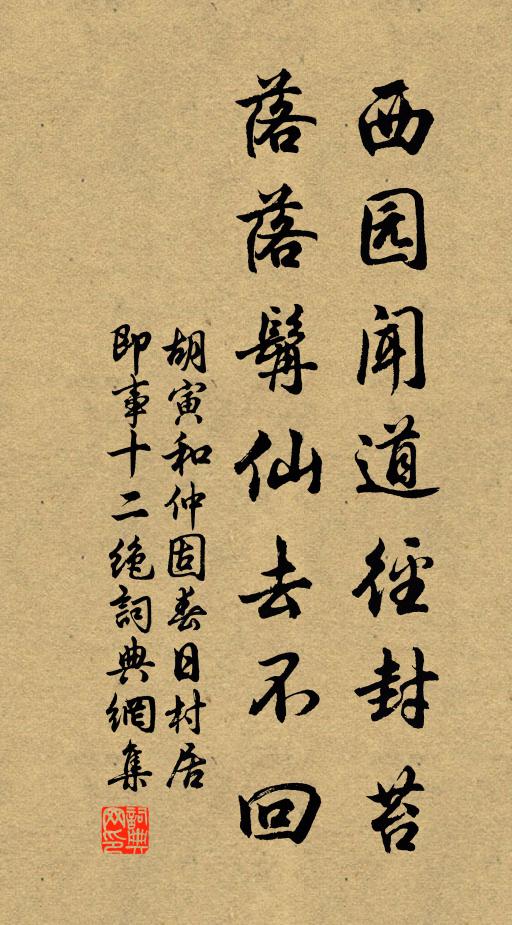 西园闻道径封苔
落落髯仙去不回
胡寅和仲固春日村居
即事十二绝詞典網集
詞典网印